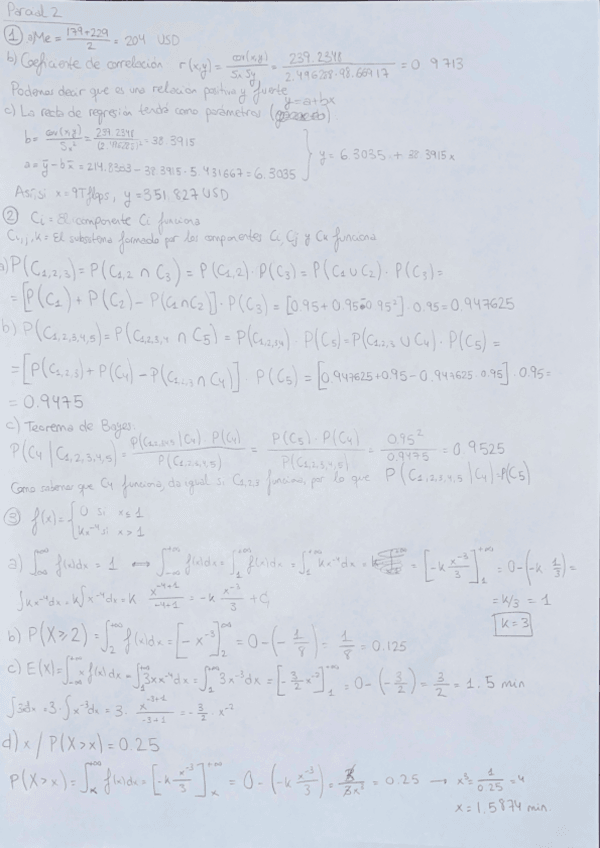 Parcial 2
① a) Me = (179+229)/2 = 204 USD
b) Coeficiente de correlación r(x,y) = cov(x,y)/(Sx Sy) = 239.2348/(2.496285·98.66917) = 0.9713
Podemos decir que es una relación positiva y fuerte
c) La recta de regresión tendrá como parámetros y=a+bx
b = cov(x,y)/Sx² = 239.2348/(2.496285)² = 38.3915
a = ȳ - bx̄ = 214.8333 - 38.3915·5.431667 = 6.3035 } y = 6.3035 + 38.3915x
Así, si x = 9 Tflops, y = 351.827 USD
② Ci = El componente Ci funciona
Ci,j,k = El subsistema formado por los componentes Ci, Cj y Ck funciona
a) P(C1,2,3) = P(C1,2 ∩ C3) = P(C1,2)·P(C3) = P(C1 ∪ C2)·P(C3) =
= [P(C1) + P(C2) - P(C1 ∩ C2)]·P(C3) = [0.95 + 0.95 - 0.95²]·0.95 = 0.947625
b) P(C1,2,3,4,5) = P(C1,2,3,4 ∩ C5) = P(C1,2,3,4)·P(C5) = P(C1,2,3 ∪ C4)·P(C5) =
= [P(C1,2,3) + P(C4) - P(C1,2,3 ∩ C4)] P(C5) = [0.947625 + 0.95 - 0.947625·0.95]·0.95 =
= 0.9475
c) Teorema de Bayes:
P(C4 | C1,2,3,4,5) = P(C1,2,3,4,5 | C4)·P(C4)/P(C1,2,3,4,5) = P(C5)·P(C4)/P(C1,2,3,4,5) = 0.95²/0.9475 = 0.9525
Como sabemos que C4 funciona, da igual si C1,2,3 funciona, por lo que P(C1,2,3,4,5 | C4) = P(C5)
③ f(x) = { 0 si x ≤ 1
kx⁻⁴ si x > 1
a) ∫_{-∞}^{+∞} f(x)dx = 1 ⟺ ∫_{-∞}^{+∞} f(x)dx = ∫_1^{+∞} f(x)dx = ∫_1^{+∞} kx⁻⁴dx = [-k x⁻³/3]_1^{+∞} = 0-(-k 1/3) =
∫kx⁻⁴dx = k∫x⁻⁴dx = k x^{-4+1}/(-4+1) = -k x⁻³/3 + C = k/3 = 1
k = 3
b) P(X ≥ 2) = ∫_2^{+∞} f(x)dx = [-x⁻³]_2^{+∞} = 0-(-1/8) = 1/8 = 0.125
c) E(X) = ∫_{-∞}^{+∞} x f(x)dx = ∫_1^{+∞} 3xx⁻⁴dx = ∫_1^{+∞} 3x⁻³dx = [-3/2 x⁻²]_1^{+∞} = 0-(-3/2) = 3/2 = 1.5 min
∫3x⁻³dx = 3·∫x⁻³dx = 3· x^{-3+1}/(-3+1) = -3/2·x⁻²
d) x / P(X > x) = 0.25
P(X > x) = ∫_x^{+∞} f(x)dx = [-k x⁻³/3]_x^{+∞} = 0-(-k x⁻³/3) = 3/3x³ = 0.25 → x³ = 1/0.25 = 4
x = 1.5874 min